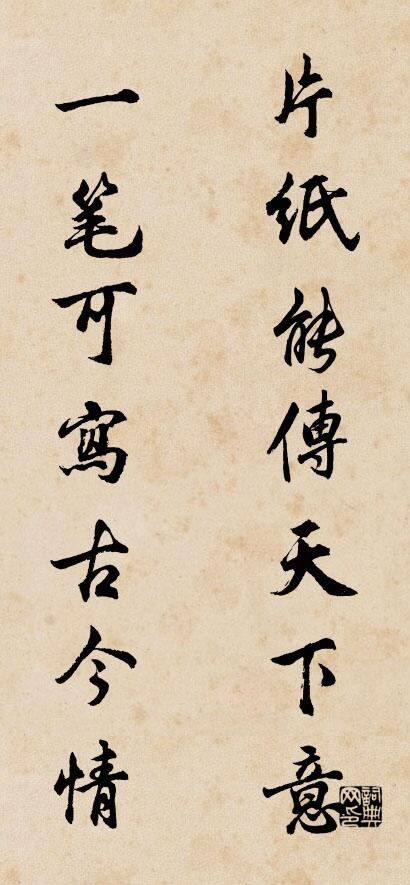 片纸能傳天下意
一笔可寫古今情
詞典网印